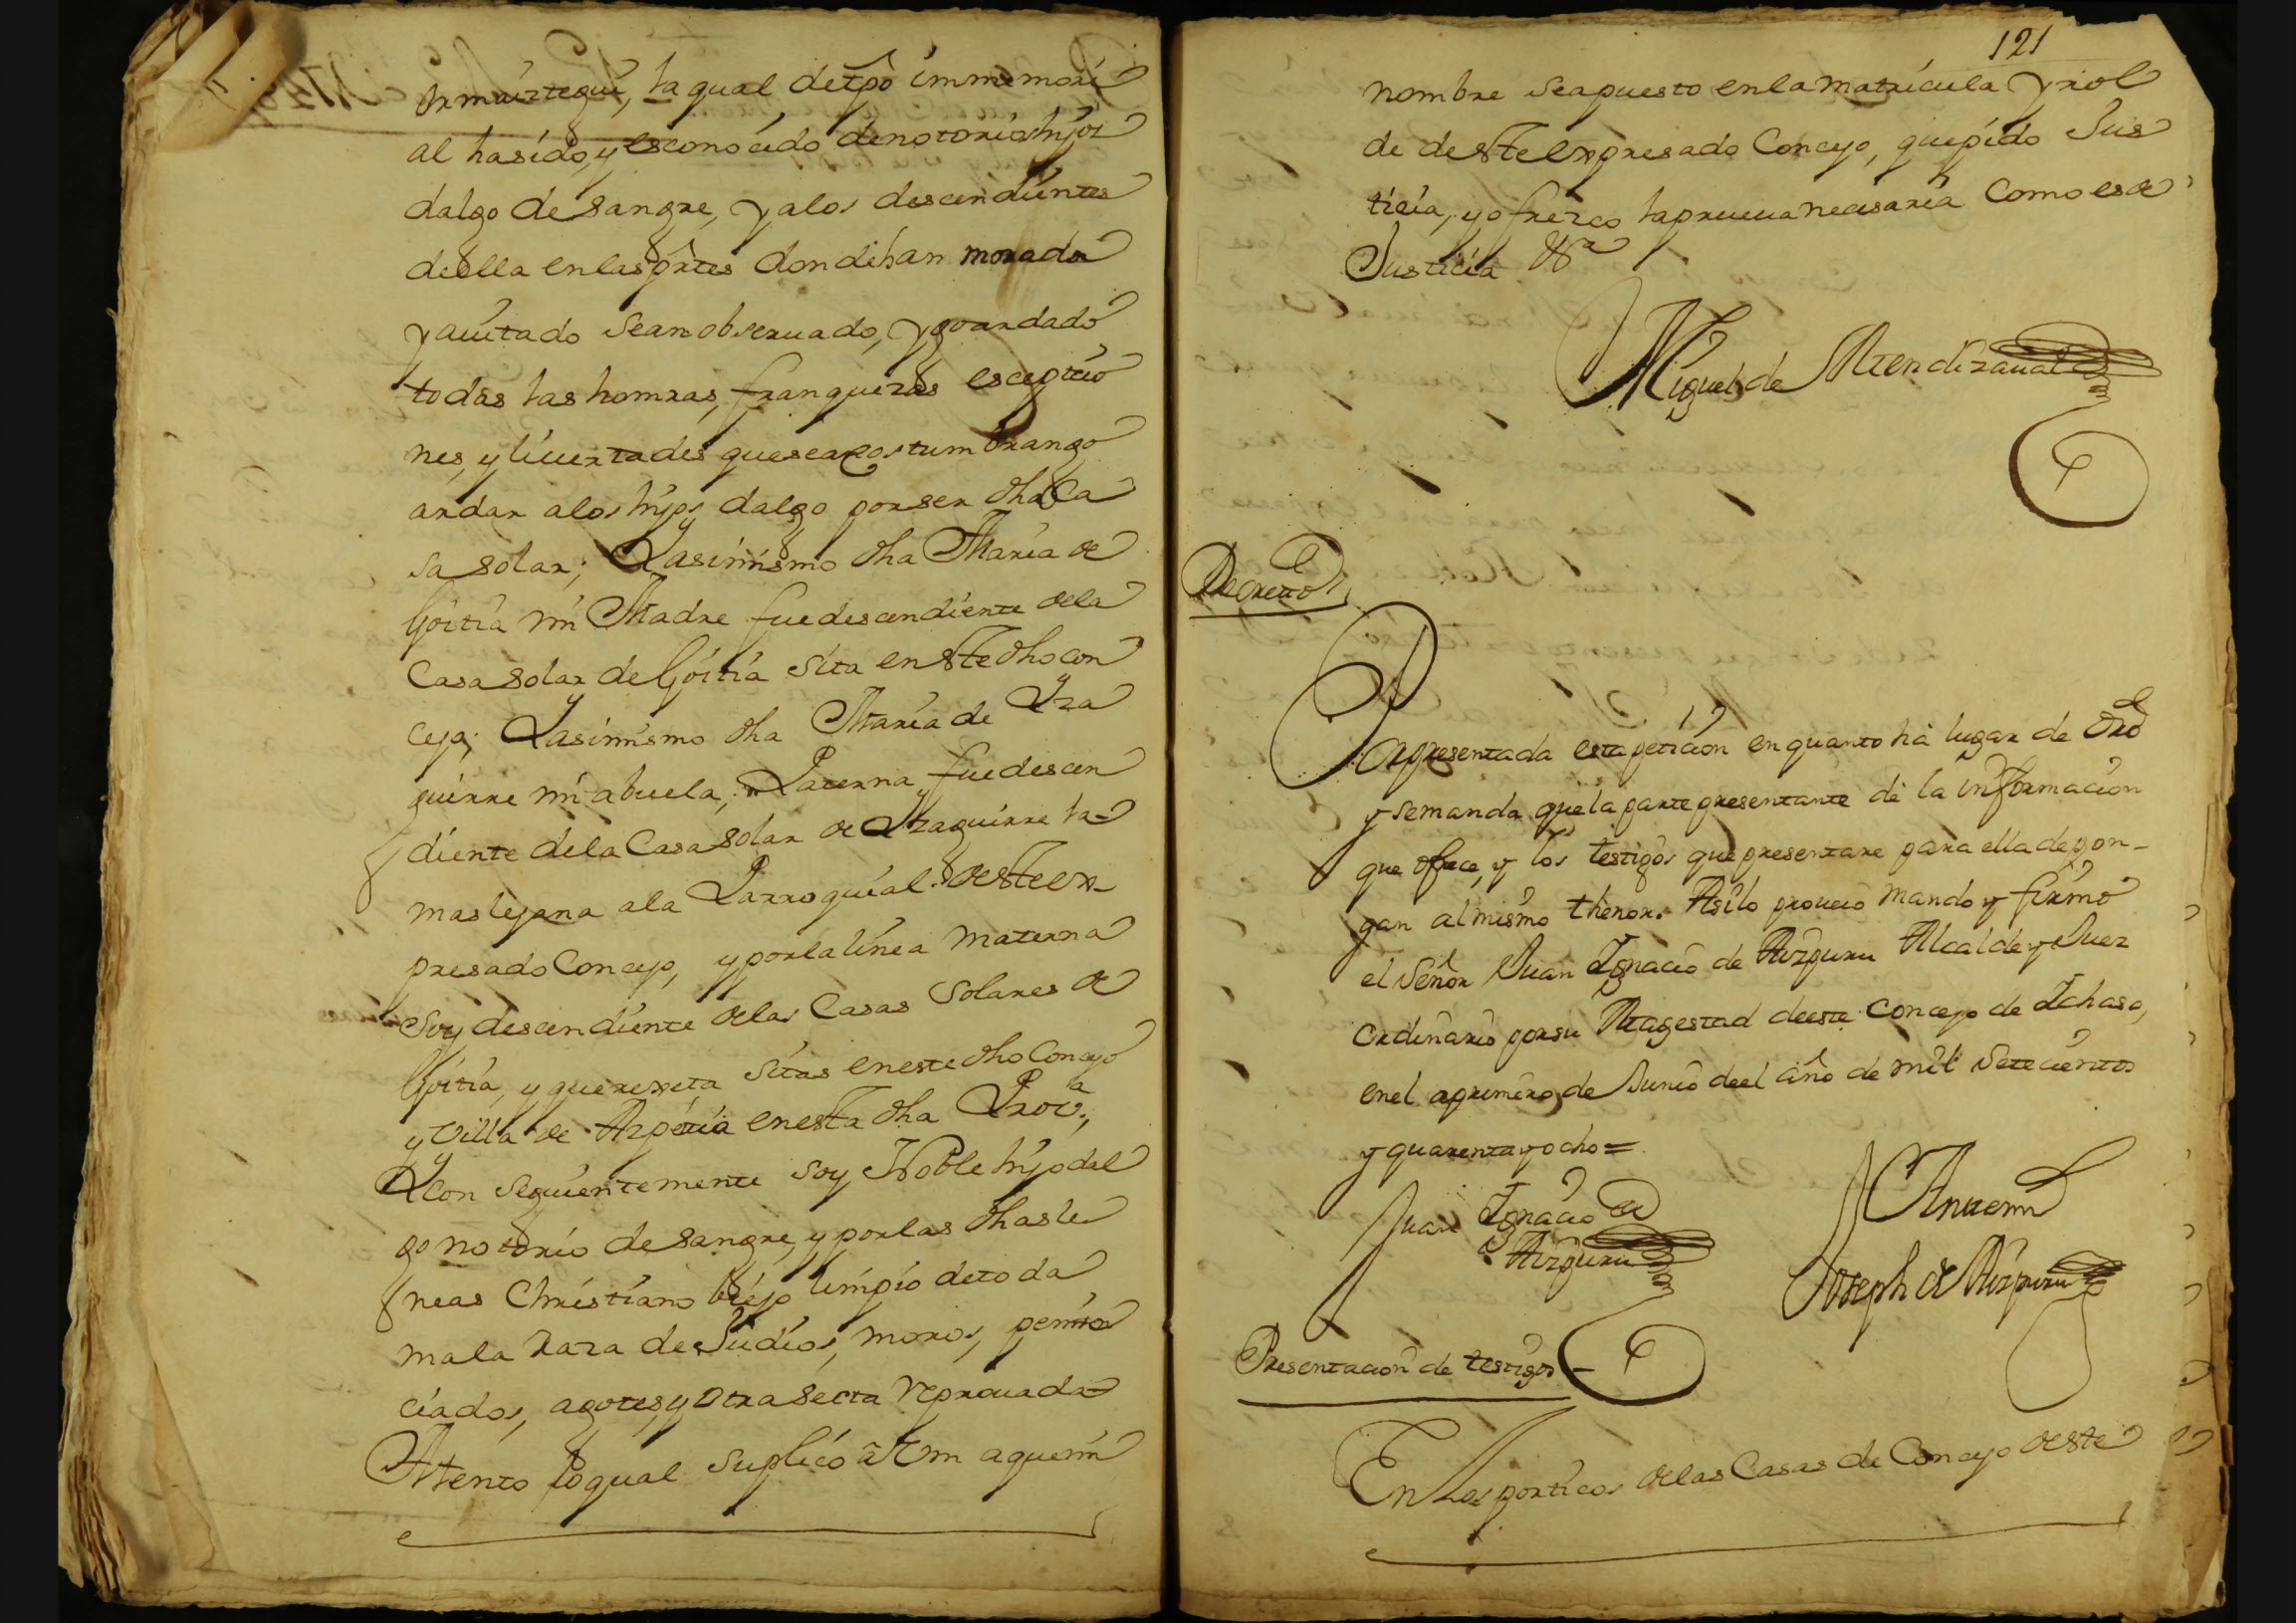 Ormaiztegui, la qual de tpo immemori
al ha sido, y es conocido de notorios hijos
dalgo de sangre, y a los descendientes
de ella en las ptes donde han morado
y auitado sean obseruado, y goardado
todas las homras, franquezas escepcio
nes, y liuertades que se acostumbran go
ardar a los hijos dalgo por ser dha Ca
sa solar; Y asimismo dha Maria de
Goitia mi Madre fue descendiente de la
Casa solar de Goitia sita en este dho con
cejo; Y asimismo dha Maria de Yza
guirre mi abuela, Paterna, fue descen
diente de la Casa solar de Yzaguirre la
mas lejana a la Parroquial de este ex
presado Concejo, y por la linea materna
Soy descendiente de las Casas Solares de
Goitia, y querexeta sitas en este dho Concejo
y Villa de Azpeitia en esta dha Prova,
Y Con seguientemente soy Noble hijo dal
go notorio de sangre, y por las dhas li
neas Christiano biejo limpio de toda
mala Raza de Judios, moros, peniten
ciados, agotes, y otra secta reprouada
Atento lo qual suplico a Vm a que mi
121
nombre sea puesto en la matricula y rol
de de este expresado Concejo, que pido Jus
ticia, y ofrezco la prueua necesaria Como es de
Justicia &a
Miguel de Mendizaual
Decreto
Por presentada esta peticion en quanto ha lugar de dro
y se manda que la parte presentante dè la informacion
que ofrece, y los testigos que presentare para ella depon-
gan al mismo thenor. Asi lo proueiò mandò y firmò
el Señor Juan Ignacio de Aizpuru Alcalde y Juez
ordinario por su Magestad de este Concejo de Ichaso,
en el a primero de Junio de el año de mil setecientos
y quarenta y ocho =
Juan Ignacio de
Aizpuru
Ante mi
Joseph de Aizpuru
Presentacion de testigos
En los porticos de las Casas de Concejo de este